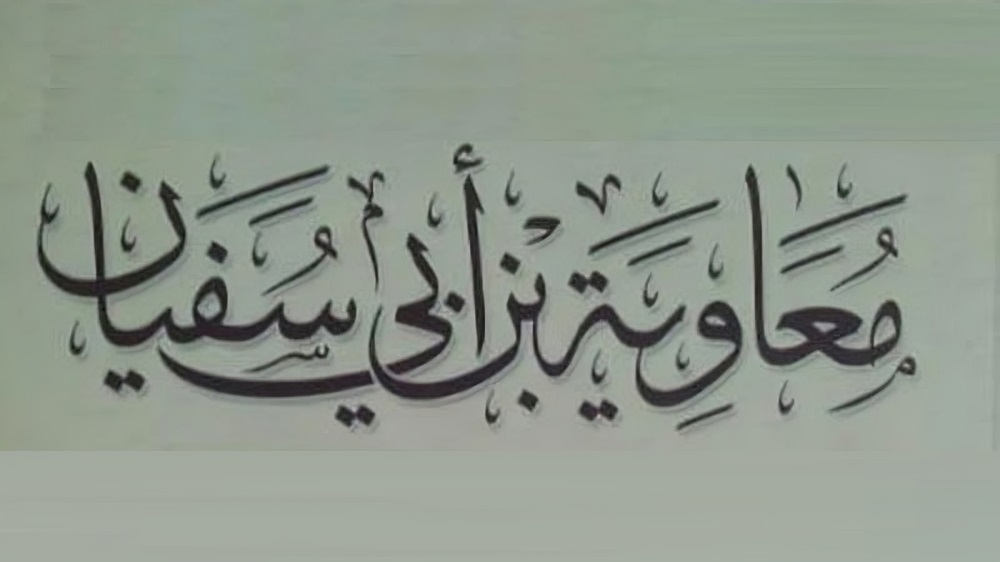 مُعَاوِيَة بْن أَبي سُفيَان